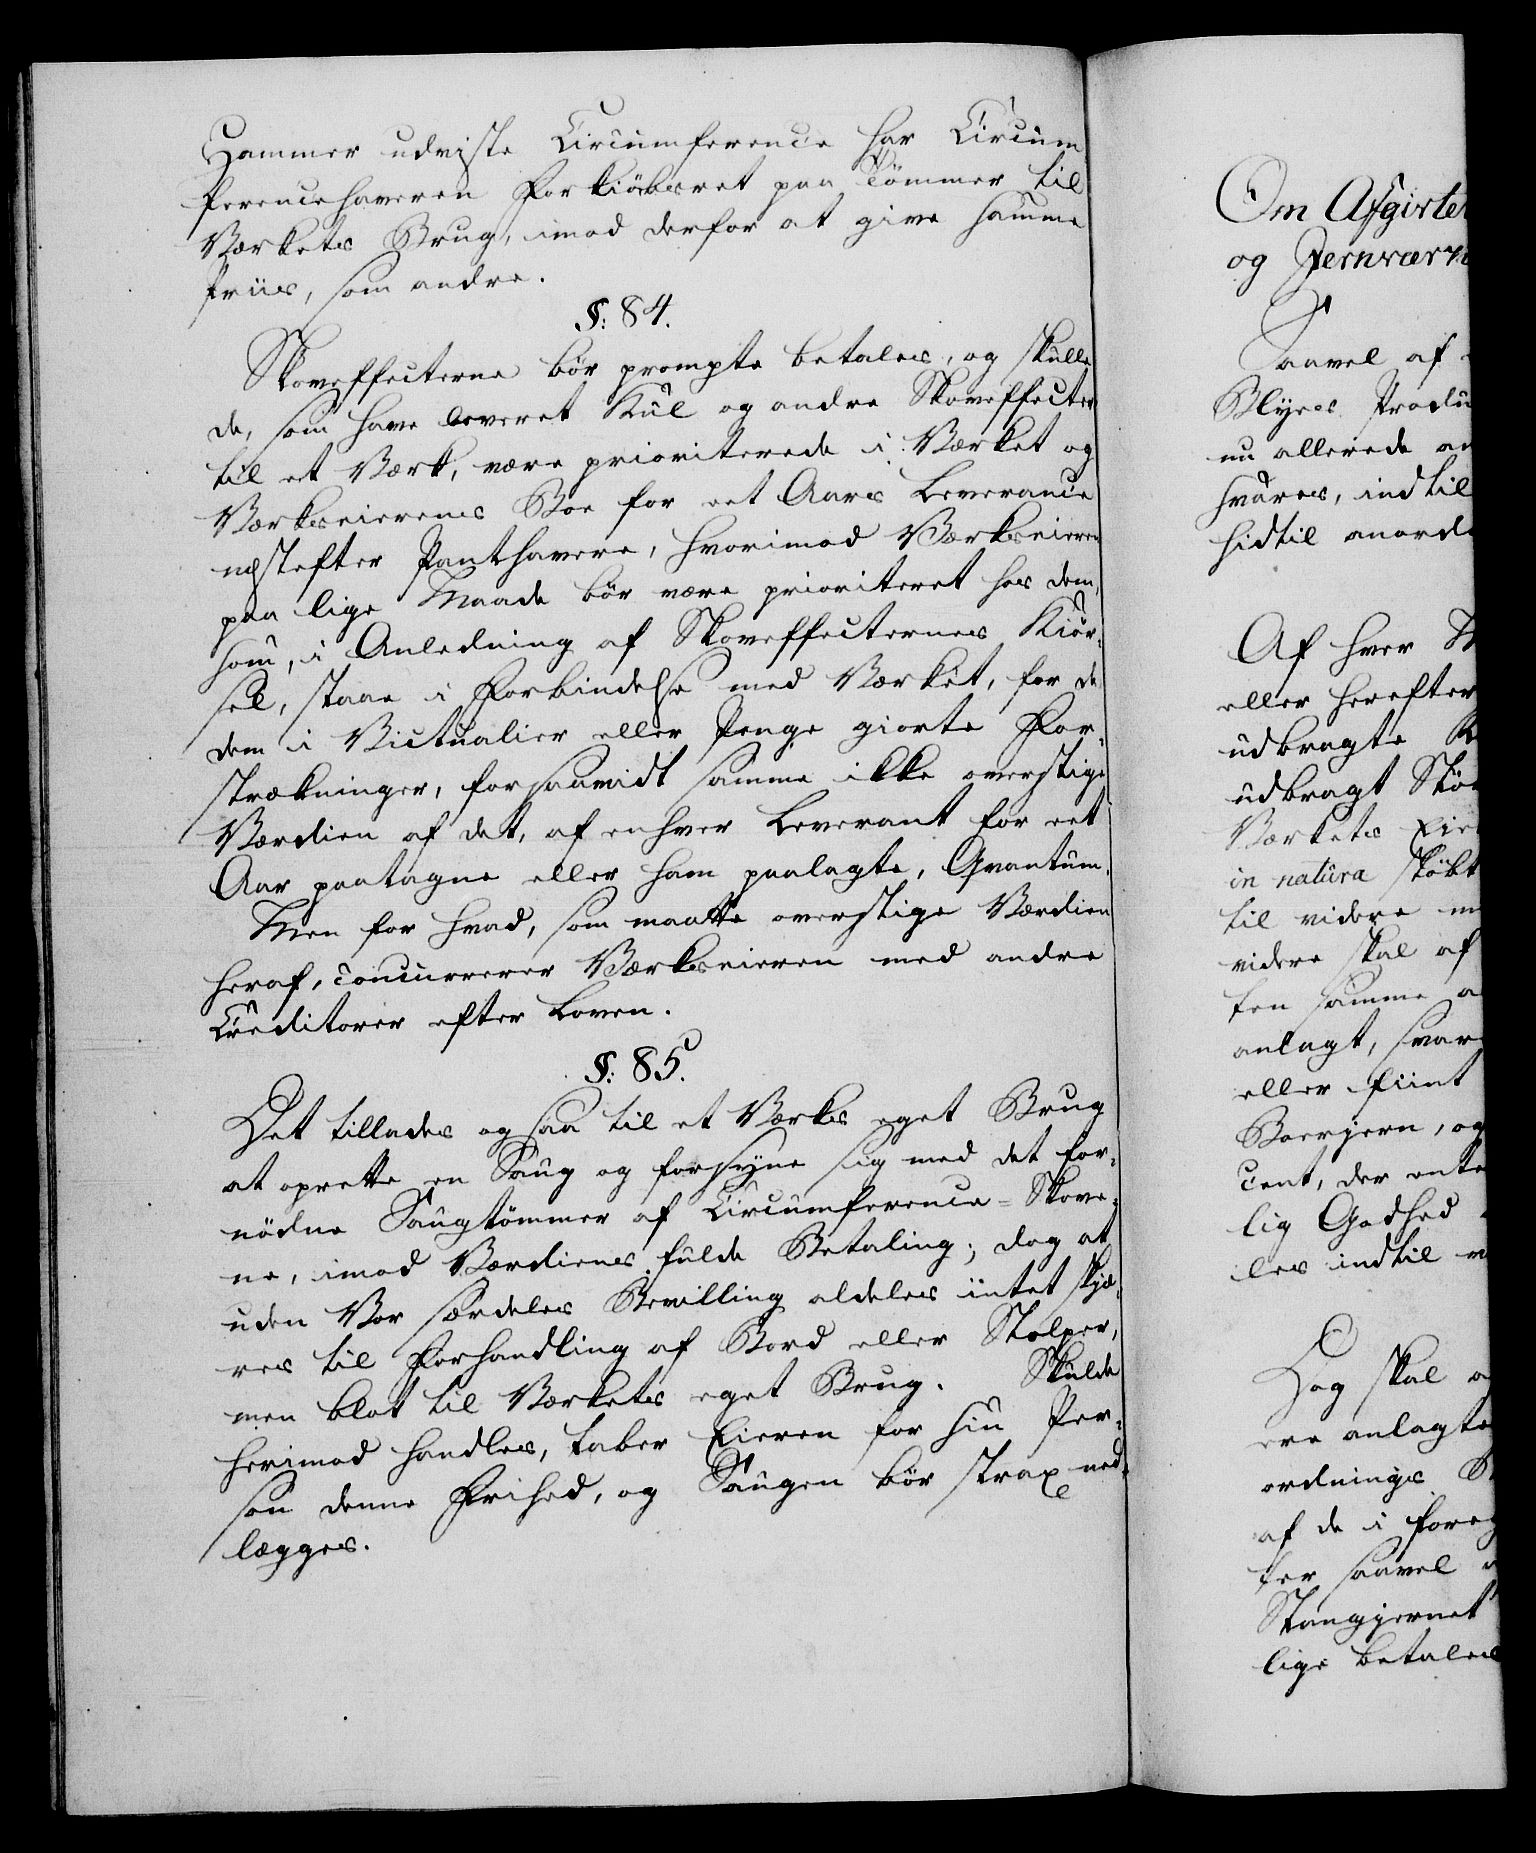 Hammer udviste Circumference har Circum
ferencehaveren Forkiöbsret paa Tömmer til
Værkets Brug, imod derfor at give samme
Priis, som andre.
§: 84.
Skoveffecterne bör prompte betales, og skulle
de, som have leveret Kul og andre Skoveffecter
til et Værk, være prioriterede i Værket og
Værkseierens Boe for eet Aars Leverance
næstefter Panthavere, hvorimod Værkseieren
paa lige Maade bör være prioriteret hos dem,
som, i Anledning af Skoveffecternes Kiör-
sel, staae i Forbindelse med Værket, for de
dem i Victualier eller Penge giorte For-
strækninger, forsaavidt samme ikke overstige
Værdien af det, af enhver Leverant for eet
Aar paatagne eller ham paalagte, Qvantum.
Men for hvad, som maatte overstige Værdien
heraf, concurrerer Værkseieren med andre
Creditorer efter Loven.
§: 85.
Det tillades og saa til et Værks eget Brug
at oprette en Saug og forsyne sig med det for-
nödne Saugtömmer af Circumference-Skove-
ne, imod Værdiens fulde Betaling; dog at
uden Vor særdeles Bevilling aldeles intet skjæ-
res til Forhandling af Bord eller Stolper,
men blot til Værkets eget Brug. Skulde
herimod handles, taber Eieren for sin Per-
son denne Frihed, og Saugen bör strax ned-
lægges.
Om Afgivter
og Jernværk
Saavel af
Blyes Produ
nu allerede an
svares, indtil
hidtil anord
Af hver
eller herefter
udbragte K
udbragt
Værkets Eie
in natura
til videre
videre skal af
ten samme a
anlagt, svar
eller fiint
Baerjern, og
Cent, der ente
lig Godhed
les indtil v
Dog skal
ere anlagte
ordnings
af de i foreg
ter saavel
Stangjernet
lige betales